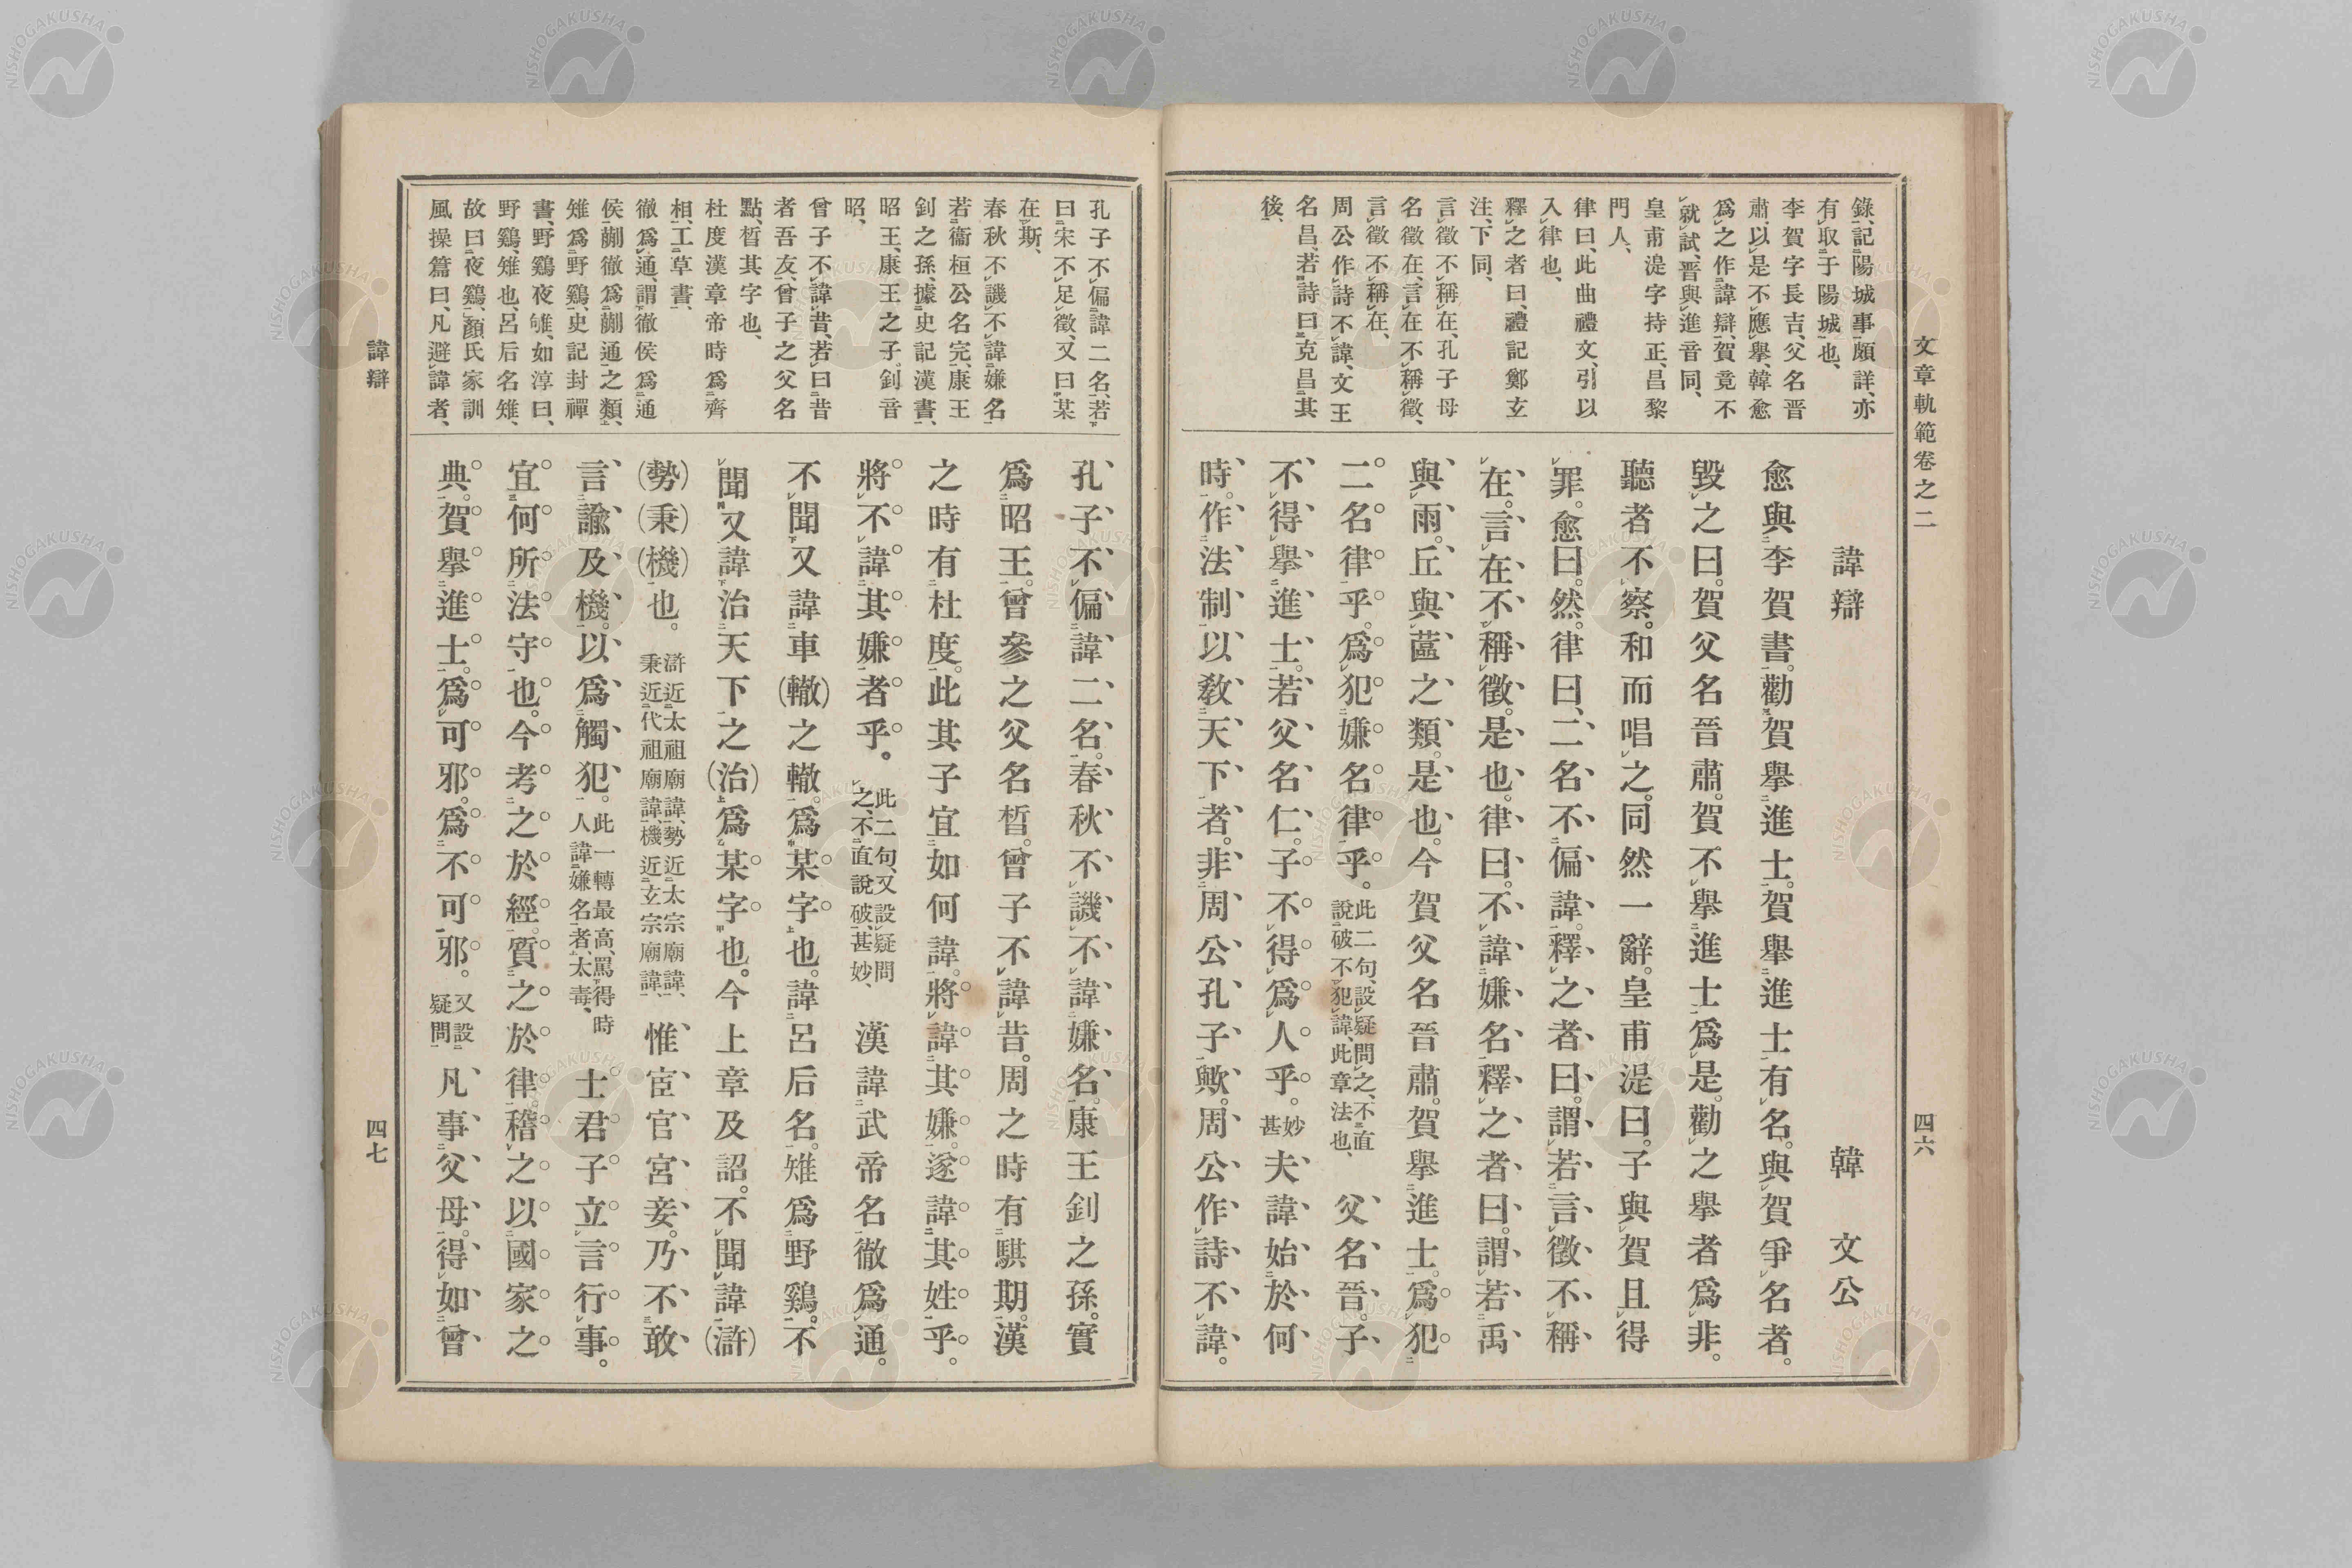 文章軌範卷之二
四六
錄、記陽城事頗詳、亦
有取于陽城也、
李賀字長吉、父名晉
肅、以是不應舉、韓愈
爲之作諱辯、賀竟不
就試、晉與進音同、
皇甫湜字持正、昌黎
門人、
律曰、此曲禮文、引以
入律也、
釋之者曰、禮記鄭玄
注、下同、
言徵不稱在、孔子母
名徵在、言在不稱徵、
言徵不稱在、
周公作詩不諱、文王
名昌、若詩曰、克昌其
後、
諱辯　韓文公
愈與李賀書。勸賀舉進士。賀舉進士有名。與賀爭名者。
毀之曰。賀父名晉肅。賀不舉進士爲是。勸之舉者爲非。
聽者不察。和而唱之。同然一辭。皇甫湜曰。子與賀且得
罪。愈曰。然。律曰、二名不偏諱。釋之者曰。謂若言徵不稱
在。言在不稱徵。是也。律曰。不諱嫌名。釋之者曰。謂若禹
與雨。丘與蓲之類。是也。今賀父名晉肅。賀舉進士。爲犯
二名律乎。爲犯嫌名律乎。此二句、設疑問之、不直說破不犯諱、此章法也、父名晉。子
不得舉進士。若父名仁。子不得爲人乎。妙甚夫諱始於何
時。作法制以教天下者。非周公孔子歟。周公作詩不諱。
孔子不偏諱二名、若
曰宋不足徵、又曰某
在斯、
春秋不譏不諱嫌名
若衞桓公名完、康王
釗之孫、據史記漢書、
昭王、康王之子、釗音
昭、
曾子不諱昔、若曰昔
者吾友、曾子之父名
點、晳其字也、
杜度漢章帝時爲齊
相、工草書、
徹爲通、謂徹侯爲通
侯、蒯徹爲蒯通之類、
雉爲野鷄、史記封禪
書、野鷄夜雊、如淳曰、
野鷄、雉也、呂后名雉、
故曰夜鷄、顏氏家訓
風操篇曰、凡避諱者、
孔子不偏諱二名。春秋不譏不諱嫌名。康王釗之孫。實
爲昭王。曾參之父名晳。曾子不諱昔。周之時有騏期。漢
之時有杜度。此其子宜如何諱。將諱其嫌。遂諱其姓乎。
將不諱其嫌者乎。此二句、又設疑問之、不直說破、甚妙、漢諱武帝名徹爲通。
不聞又諱車(轍)之轍。爲某字也。諱呂后名。雉爲野鷄。不
聞又諱治天下之(治)爲某字也。今上章及詔。不聞諱(滸)
(勢)(秉)(機)也。滸近太祖廟諱、勢近太宗廟諱、秉近代祖廟諱、機近玄宗廟諱、惟宦官宮妾。乃不敢
言諭及機。以爲觸犯。此一轉最高、罵得時人諱嫌名者、太毒、士君子立言行事。
宜何所法守也。今考之於經。質之於律。稽之以國家之
典。賀舉進士。爲可邪。爲不可邪。又設疑問凡事父母。得如曾
諱辯
四七